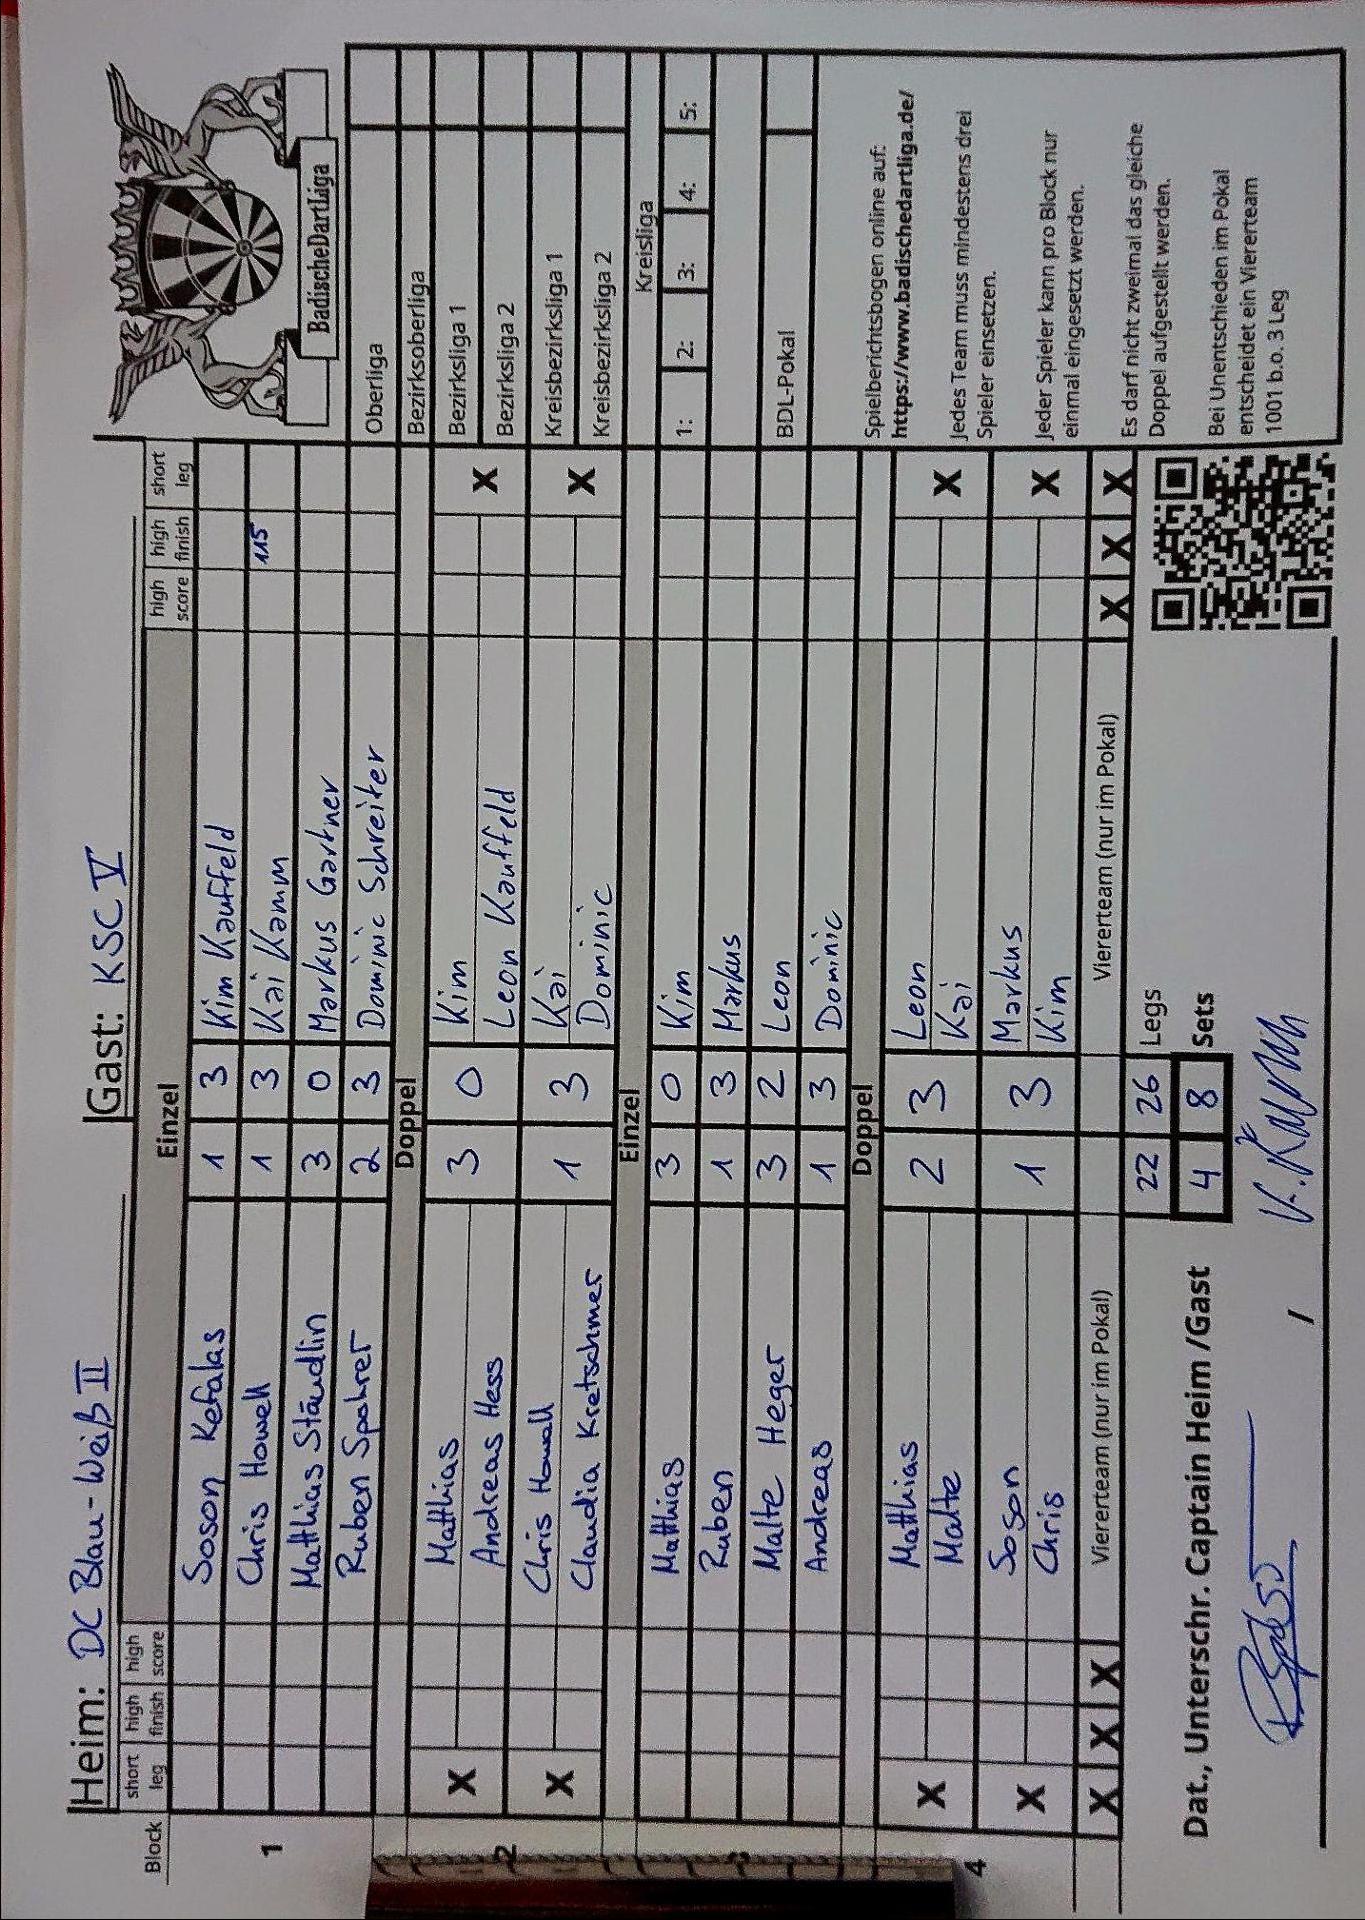 Heim: DC Blau-Weiß II Gast: KSC V
BadischeDartLiga
Block short leg high finish high score Einzel high score high finish short leg
1
Soson Kefalas 1 3 Kim Kauffeld
Chris Howell 1 3 Kai Kamm 115
Matthias Ständlin 3 0 Markus Gartner
Ruben Spohrer 2 3 Dominic Schreiter
Doppel
2
X Matthias 3 0 Kim X
Andreas Hess Leon Kauffeld
X Chris Howell 1 3 Kai X
Claudia Kretschmer Dominic
Einzel
Matthias 3 0 Kim
Ruben 1 3 Markus
Malte Heger 3 2 Leon
Andreas 1 3 Dominic
Doppel
4
X Matthias 2 3 Leon X
Malte Kai
X Soson 1 3 Markus X
Chris Kim
X X X Viererteam (nur im Pokal) Viererteam (nur im Pokal) X X X
22 26 Legs
4 8 Sets
Dat., Unterschr. Captain Heim /Gast
/ K. Kamm
Oberliga
Bezirksoberliga
Bezirksliga 1
Bezirksliga 2
Kreisbezirksliga 1
Kreisbezirksliga 2
Kreisliga
1: 2: 3: 4: 5:
BDL-Pokal
Spielberichtsbogen online auf:
https://www.badischedartliga.de/
Jedes Team muss mindestens drei
Spieler einsetzen.
Jeder Spieler kann pro Block nur
einmal eingesetzt werden.
Es darf nicht zweimal das gleiche
Doppel aufgestellt werden.
Bei Unentschieden im Pokal
entscheidet ein Viererteam
1001 b.o. 3 Leg